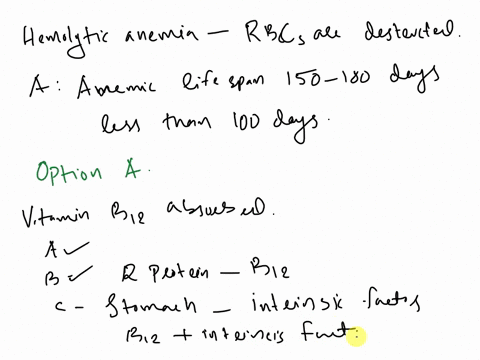 Hemolytic anemia — RBCs are destructed.
A: Anemic life span 150–180 days
less than 100 days.
Option A.
Vitamin B12 absorbed.
A ✓
B ✓ R Protein — B12
C – Stomach – intrinsic factor
B12 + intrinsic fact